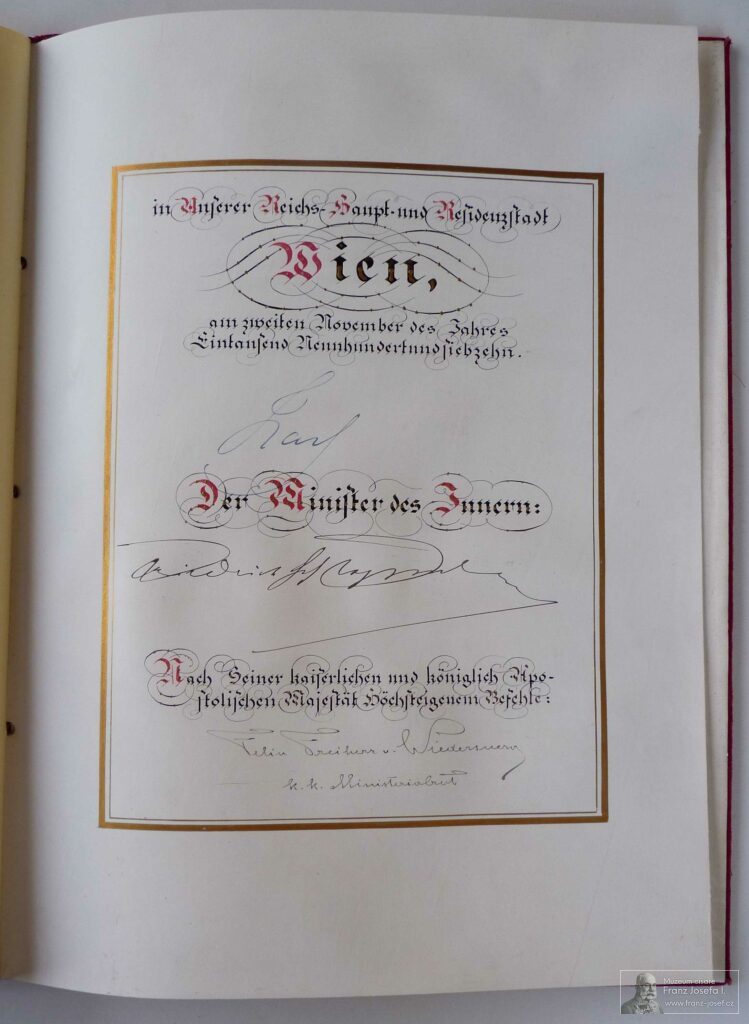 in Unserer Reichs-Haupt-und Residenzstadt
Wien,
am zweiten November des Jahres
Eintausend Neunhundertundsiebzehn.
Karl
Der Minister des Innern:
Friedrich
Nach Seiner kaiserlichen und königlich Apo-
stolischen Majestät Höchsteigenem Befehle:
Felix Freiherr v. Wiedersperg
k. k. Ministerialrat
Muzeum císaře
Franz Josefa I.
www.franz-josef.cz